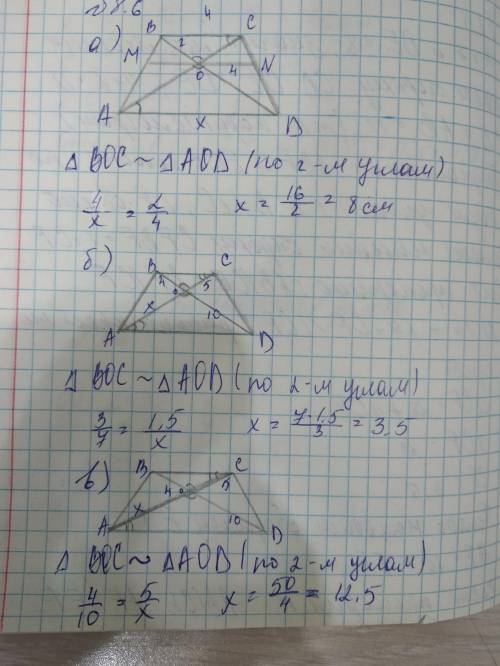 8.6
а)
4
B C
2
M N
O 4
A x D
Δ BOC ~ Δ AOD (по 2-м углам)
4/x = 2/4 x = 16/2 = 8 см
б)
B C
4 o 5
x 10
A D
Δ BOC ~ Δ AOD (по 2-м углам)
3/7 = 1,5/x x = 7·1,5/3 = 3.5
в)
B C
4 o 5
x 10
A D
Δ BOC ~ Δ AOD (по 2-м углам)
4/10 = 5/x x = 50/4 = 12.5